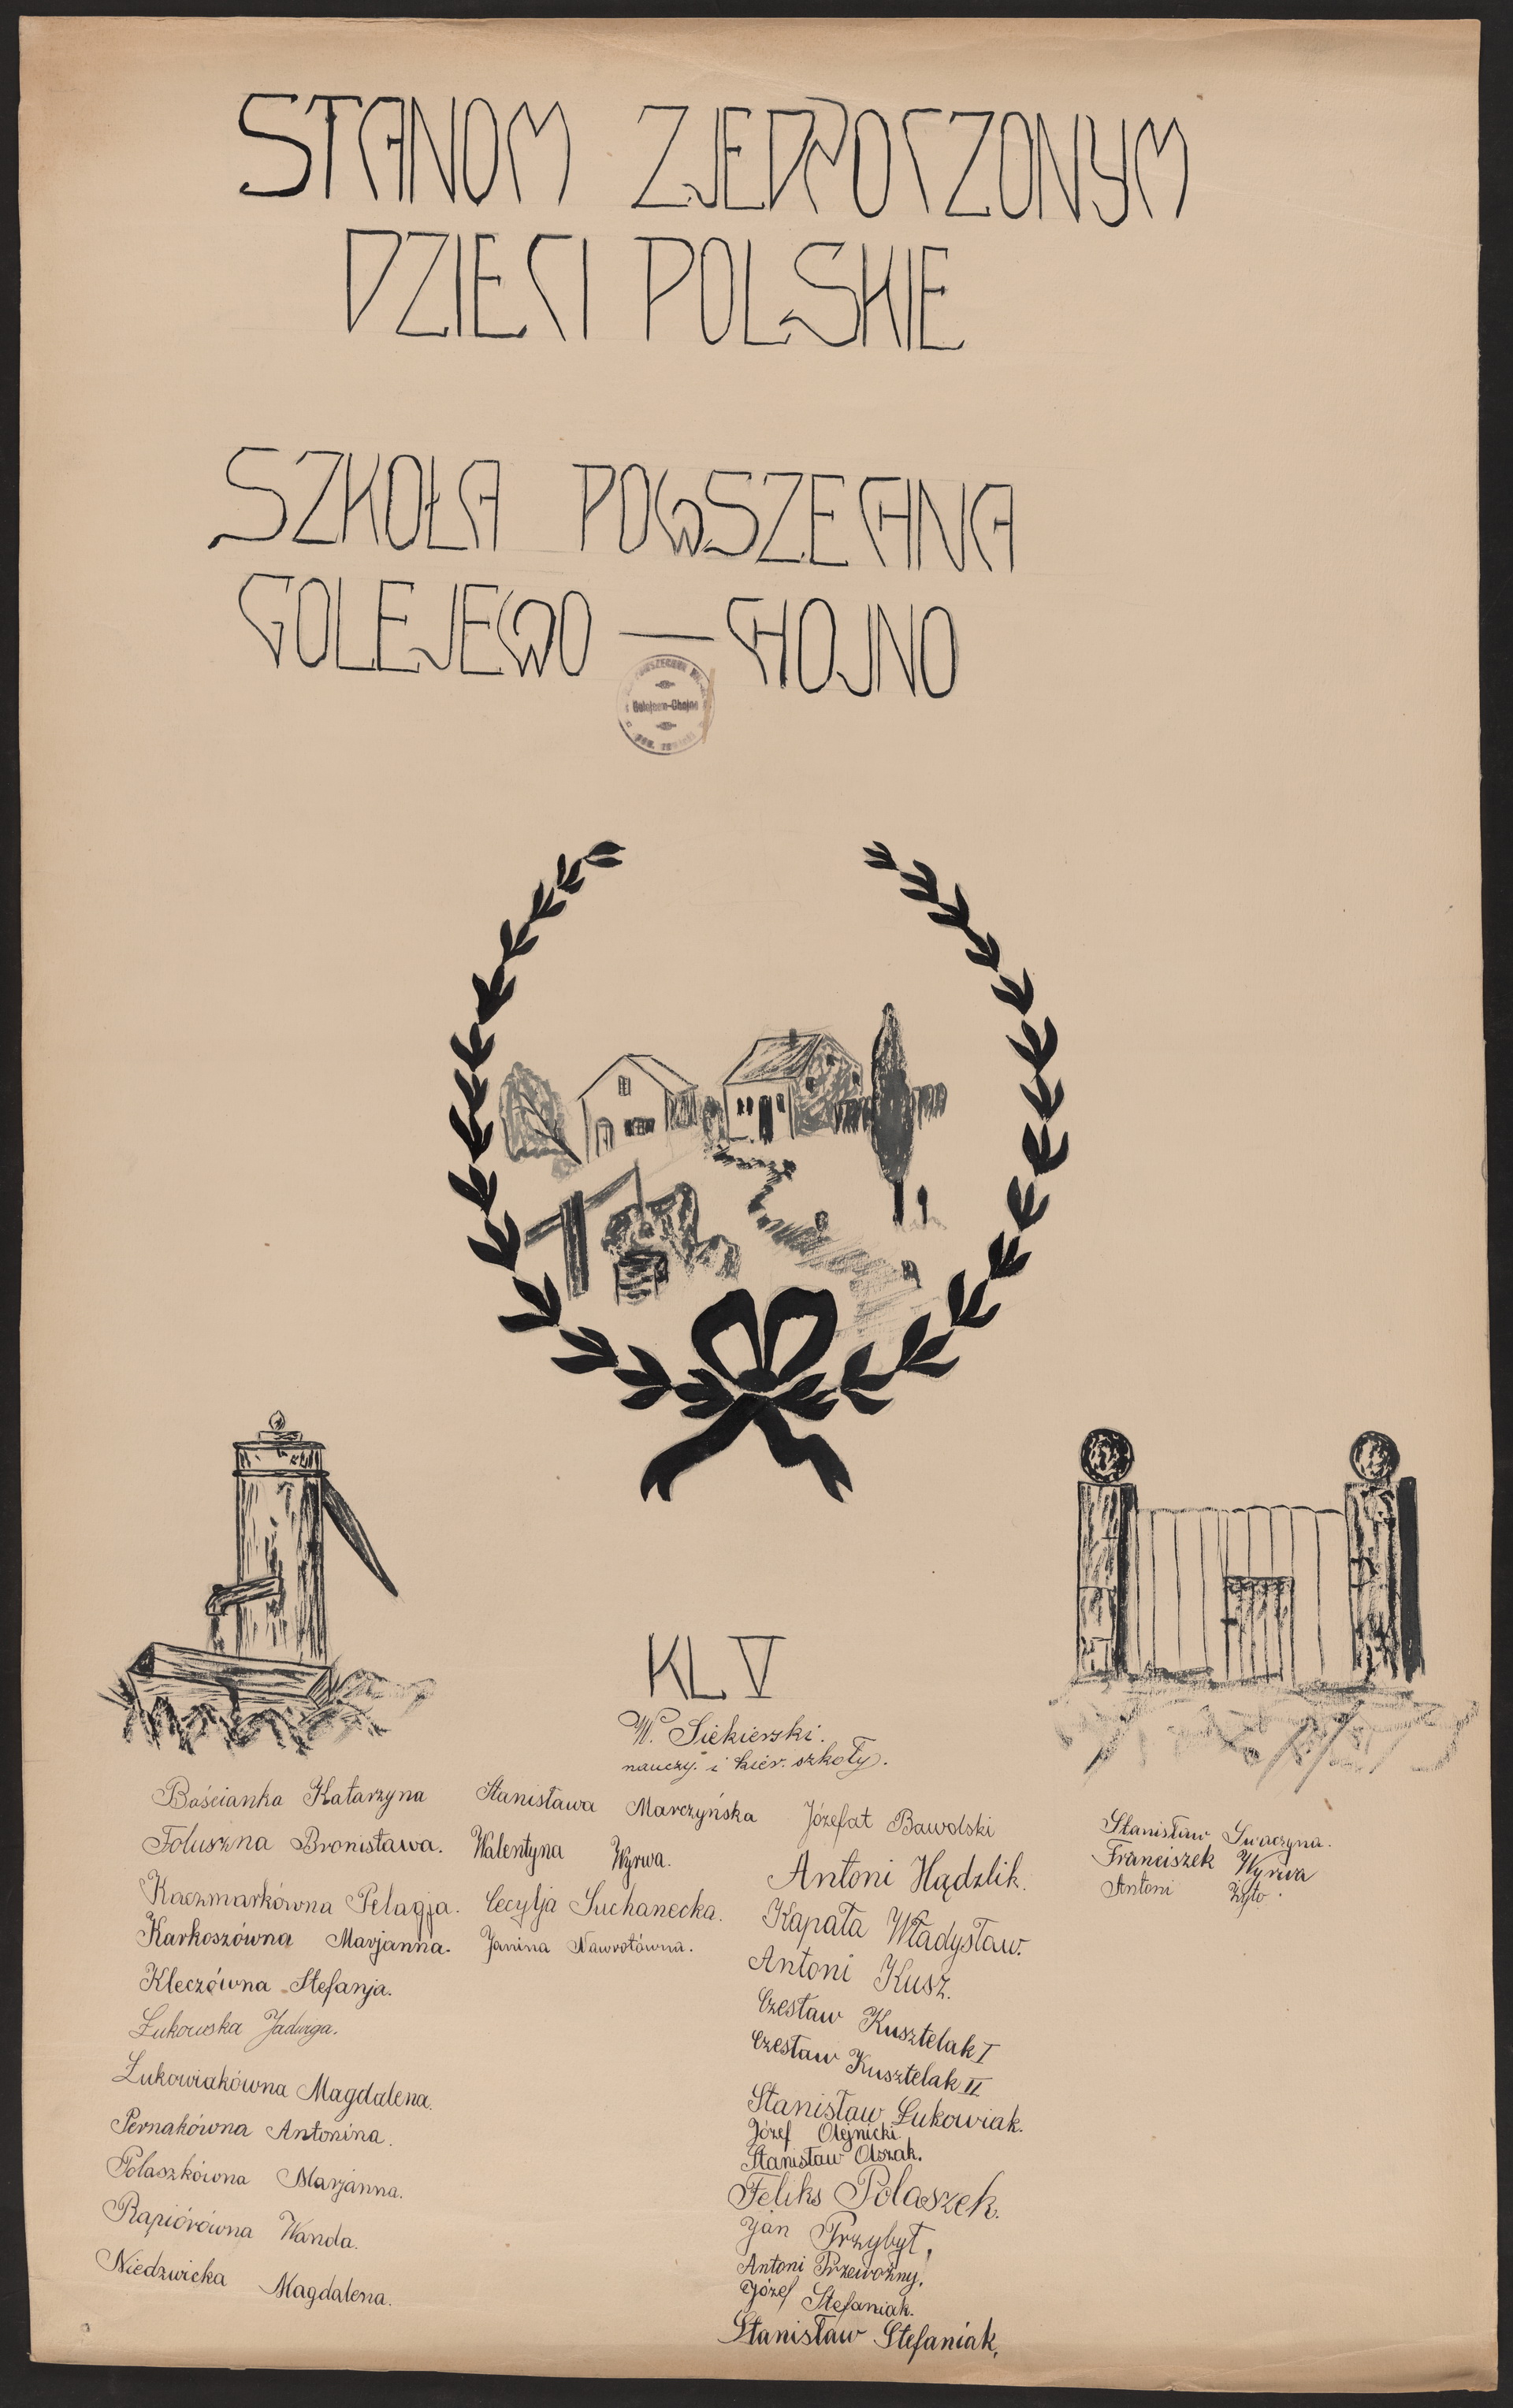 STANOM ZJEDNOCZONYM
DZIECI POLSKIE
SZKOŁA POWSZECHNA
GOLEJEWO — CHOJNO
Golejewo-Chojno
KL V
W. Siekierski.
nauczy. i kier. szkoły.
Bościanka Katarzyna
Foluszna Bronisława.
Kaczmarkówna Pelagja.
Karkoszówna Marjanna.
Kleczówna Stefanja.
Łukowska Jadwiga.
Łukowiakówna Magdalena.
Pernakówna Antonina.
Polaszkówna Marjanna.
Rapiórówna Wanda.
Niedzwicka Magdalena.
Stanisława Marczyńska
Walentyna Wyrwa.
Cecylja Suchanecka.
Janina Nawrotówna.
Józefat Bawolski
Antoni Hądzlik.
Kapała Władysław.
Antoni Kusz.
Czesław Kusztelak I
Czesław Kusztelak II
Stanisław Łukowiak.
Józef Olejnicki.
Stanisław Olszak.
Feliks Polaszek.
Jan Przybył.
Antoni Przewoźny.
Józef Stefaniak.
Stanisław Stefaniak.
Stanisław Swaczyna.
Franciszek Wyrwa
Antoni Żyto.